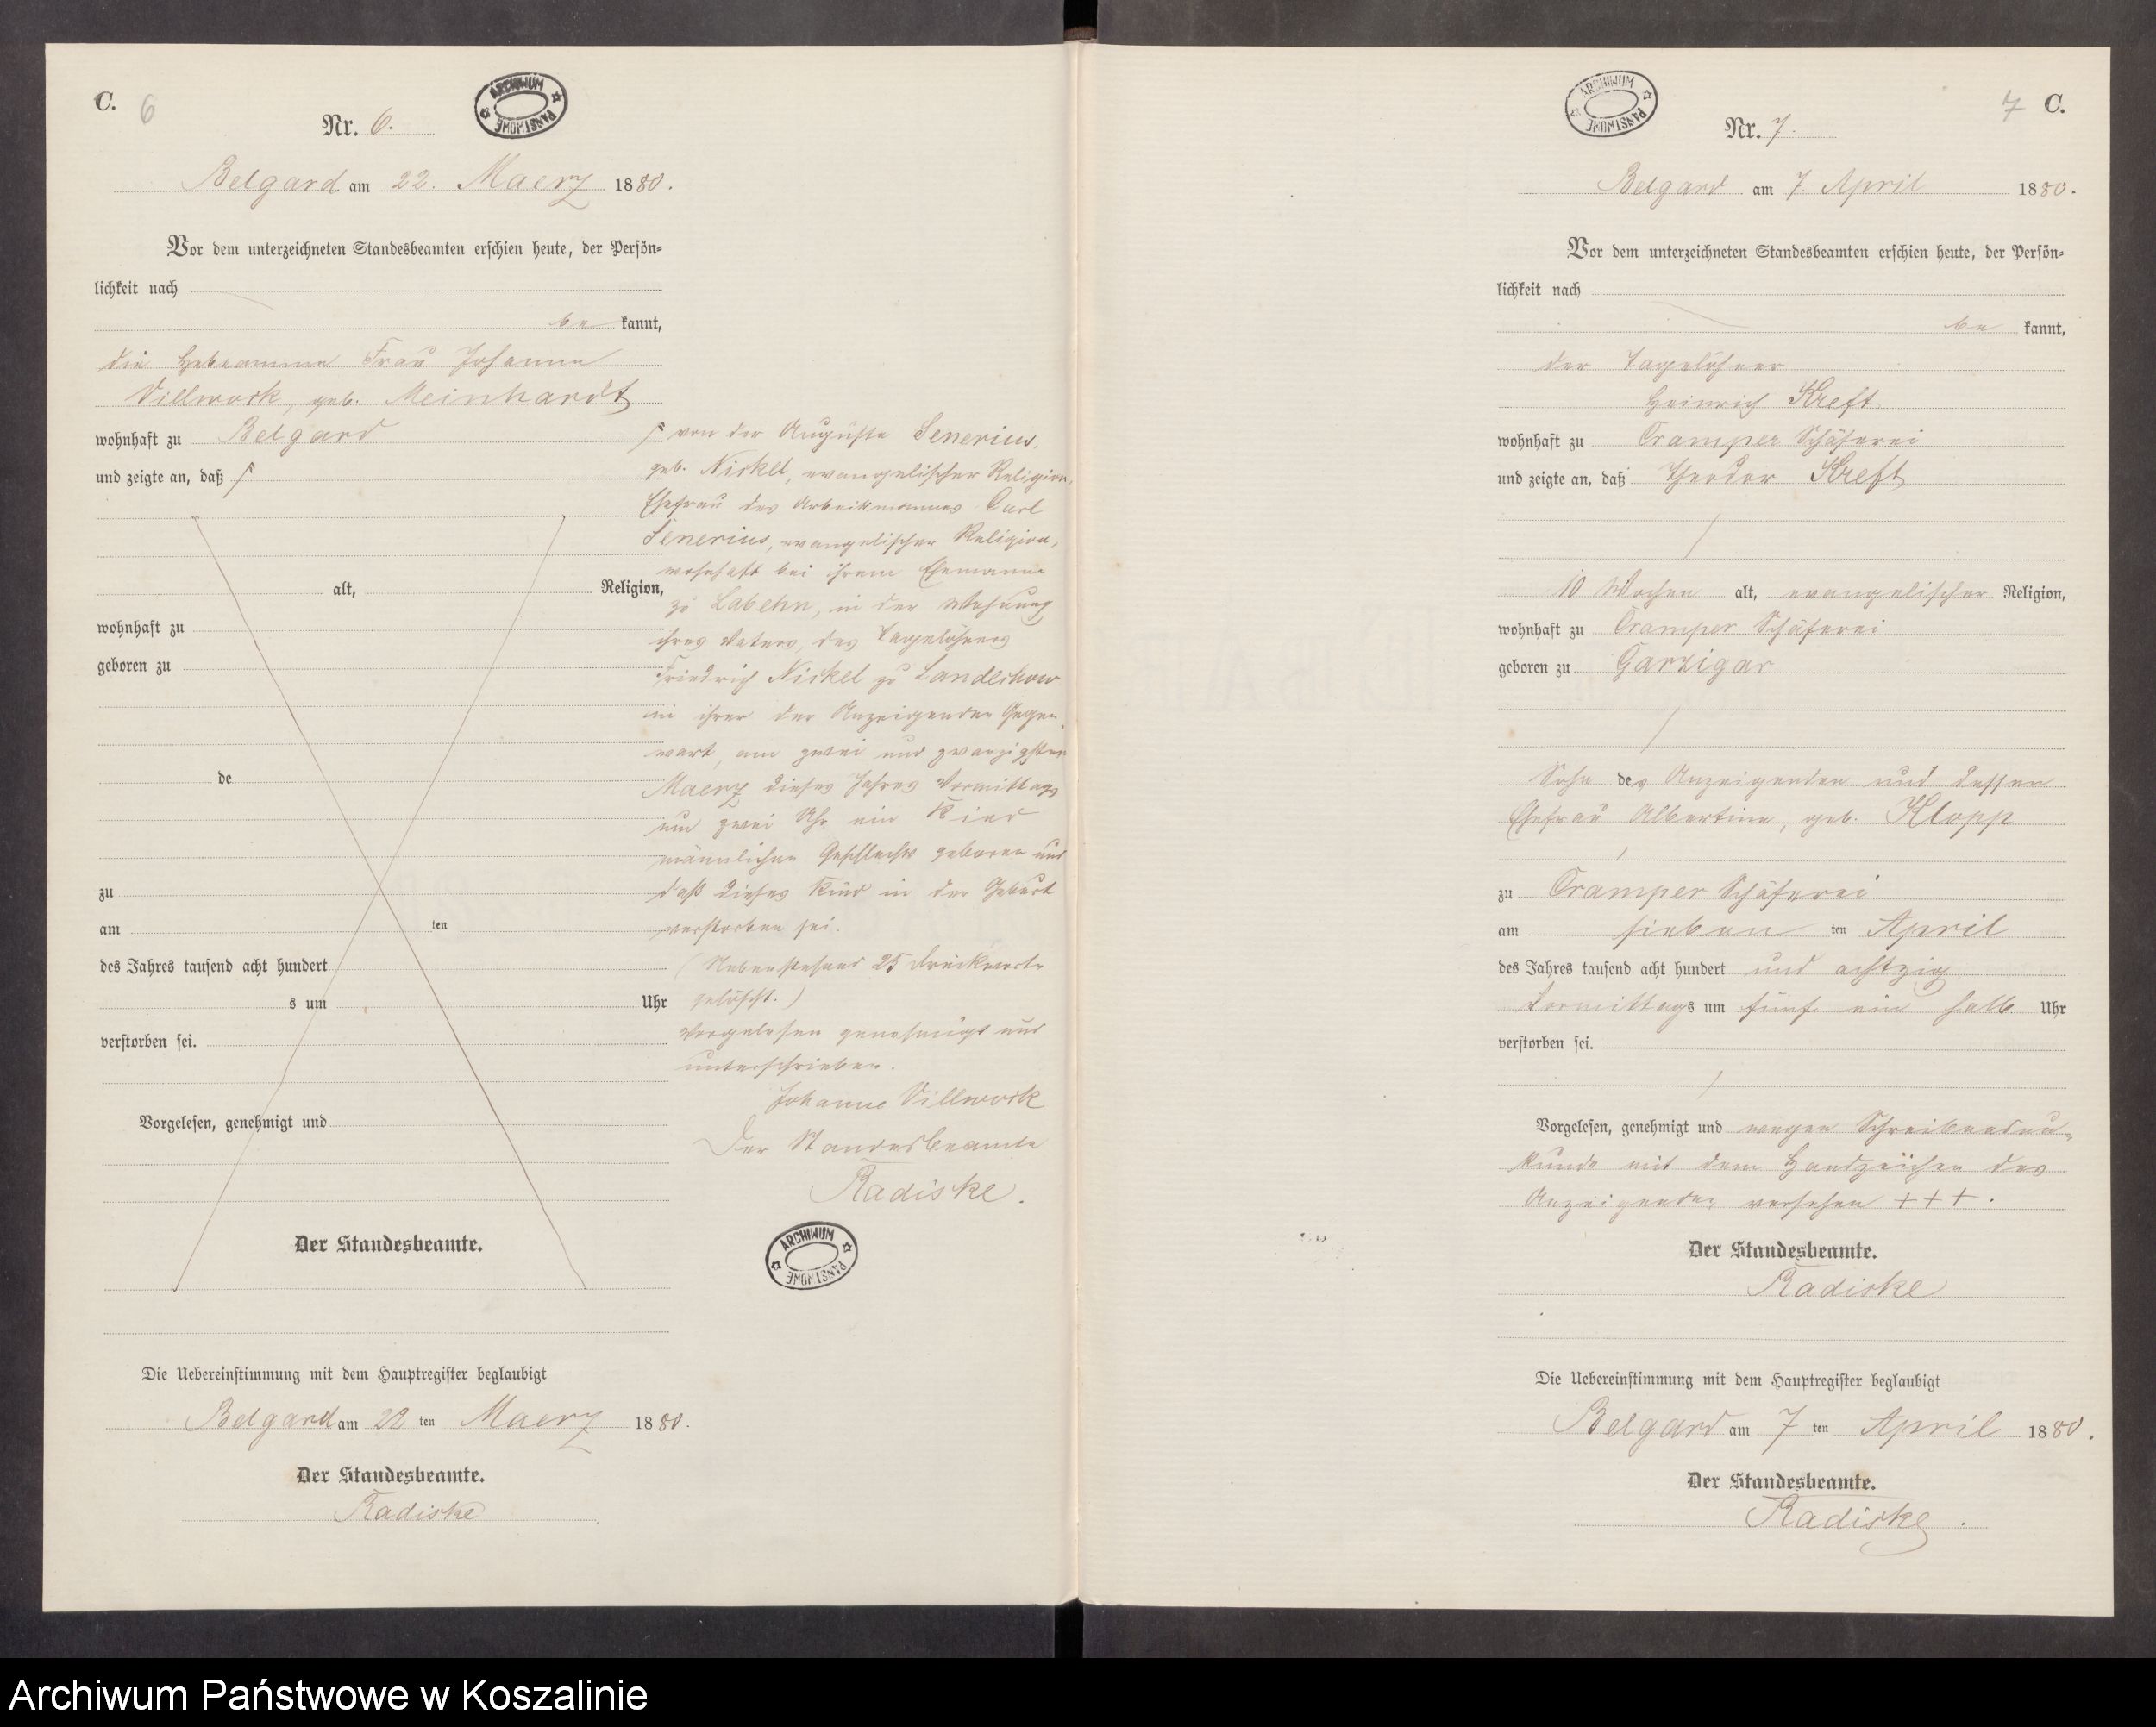 C. 6
ARCHIWUM PAŃSTWOWE
Nr. 6.
Belgard am 22. Maerz 1880.
Vor dem unterzeichneten Standesbeamten erschien heute, der Persön-
lichkeit nach
be kannt,
die Hebeamme Frau Johanne
Villwock, geb. Meinhardt
wohnhaft zu Belgard
und zeigte an, daß
alt, Religion,
wohnhaft zu
geboren zu
de
zu
am ten
des Jahres tausend acht hundert
s um Uhr
verstorben sei.
Vorgelesen, genehmigt und
Der Standesbeamte.
von der Auguste Senerius,
geb. Nickel, evangelischer Religion,
Ehefrau des Arbeitmannes Carl
Senerius, evangelischer Religion,
wohnhaft bei ihrem Ehemanne
zu Labehn, in der Wohnung
ihres Vaters, des Tagelöhners
Friedrich Nickel zu Landechow
in ihrer der Anzeigenden Gegen-
wart, am zwei und zwanzigsten
Maerz dieses Jahres Vormittags
um zwei Uhr ein Kind
männlichen Geschlechts geboren und
daß dieses Kind in der Geburt
verstorben sei.
(Nebenstehend 25 Druckworte
gelöscht.)
Vorgelesen genehmigt und
unterschrieben.
Johanne Villwock
Der Standesbeamte
Radiske.
ARCHIWUM PAŃSTWOWE
Die Uebereinstimmung mit dem Hauptregister beglaubigt
Belgard am 22 ten Maerz 1880.
Der Standesbeamte.
Radiske
7 C.
ARCHIWUM PAŃSTWOWE
Nr. 7.
Belgard am 7. April 1880.
Vor dem unterzeichneten Standesbeamten erschien heute, der Persön-
lichkeit nach
be kannt,
der Tagelöhner
Heinrich Kreft
wohnhaft zu Cramper Schäferei
und zeigte an, daß Theodor Kreft
10 Wochen alt, evangelischer Religion,
wohnhaft zu Cramper Schäferei
geboren zu Garzigar
Sohn des Anzeigenden und dessen
Ehefrau Albertine, geb. Klopp
zu Cramper Schäferei
am sieben ten April
des Jahres tausend acht hundert und achtzig
Vormittags um fünf ein halb Uhr
verstorben sei.
Vorgelesen, genehmigt und wegen Schreibensun-
kunde mit dem Handzeichen des
Anzeigenden versehen +++.
Der Standesbeamte.
Radiske
Die Uebereinstimmung mit dem Hauptregister beglaubigt
Belgard am 7 ten April 1880.
Der Standesbeamte.
Radiske.
Archiwum Państwowe w Koszalinie